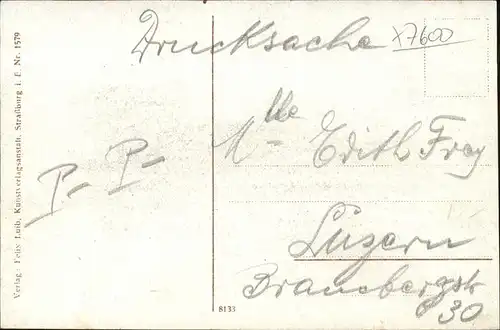 Drucksache
x7600
Mlle Edith Frey
P.- P.-
Luzern
Brambergstr
30
Verlag: Felix Luib, Kunstverlagsanstalt, Straßburg i. E. Nr. 1579
8133